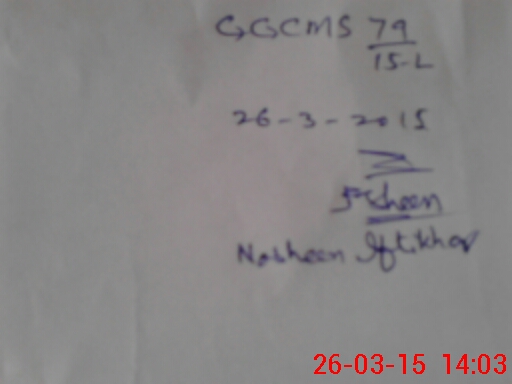 GGCMS 79
15-L
26-3-2015
Nosheen Iftikhar
26-03-15 14:03